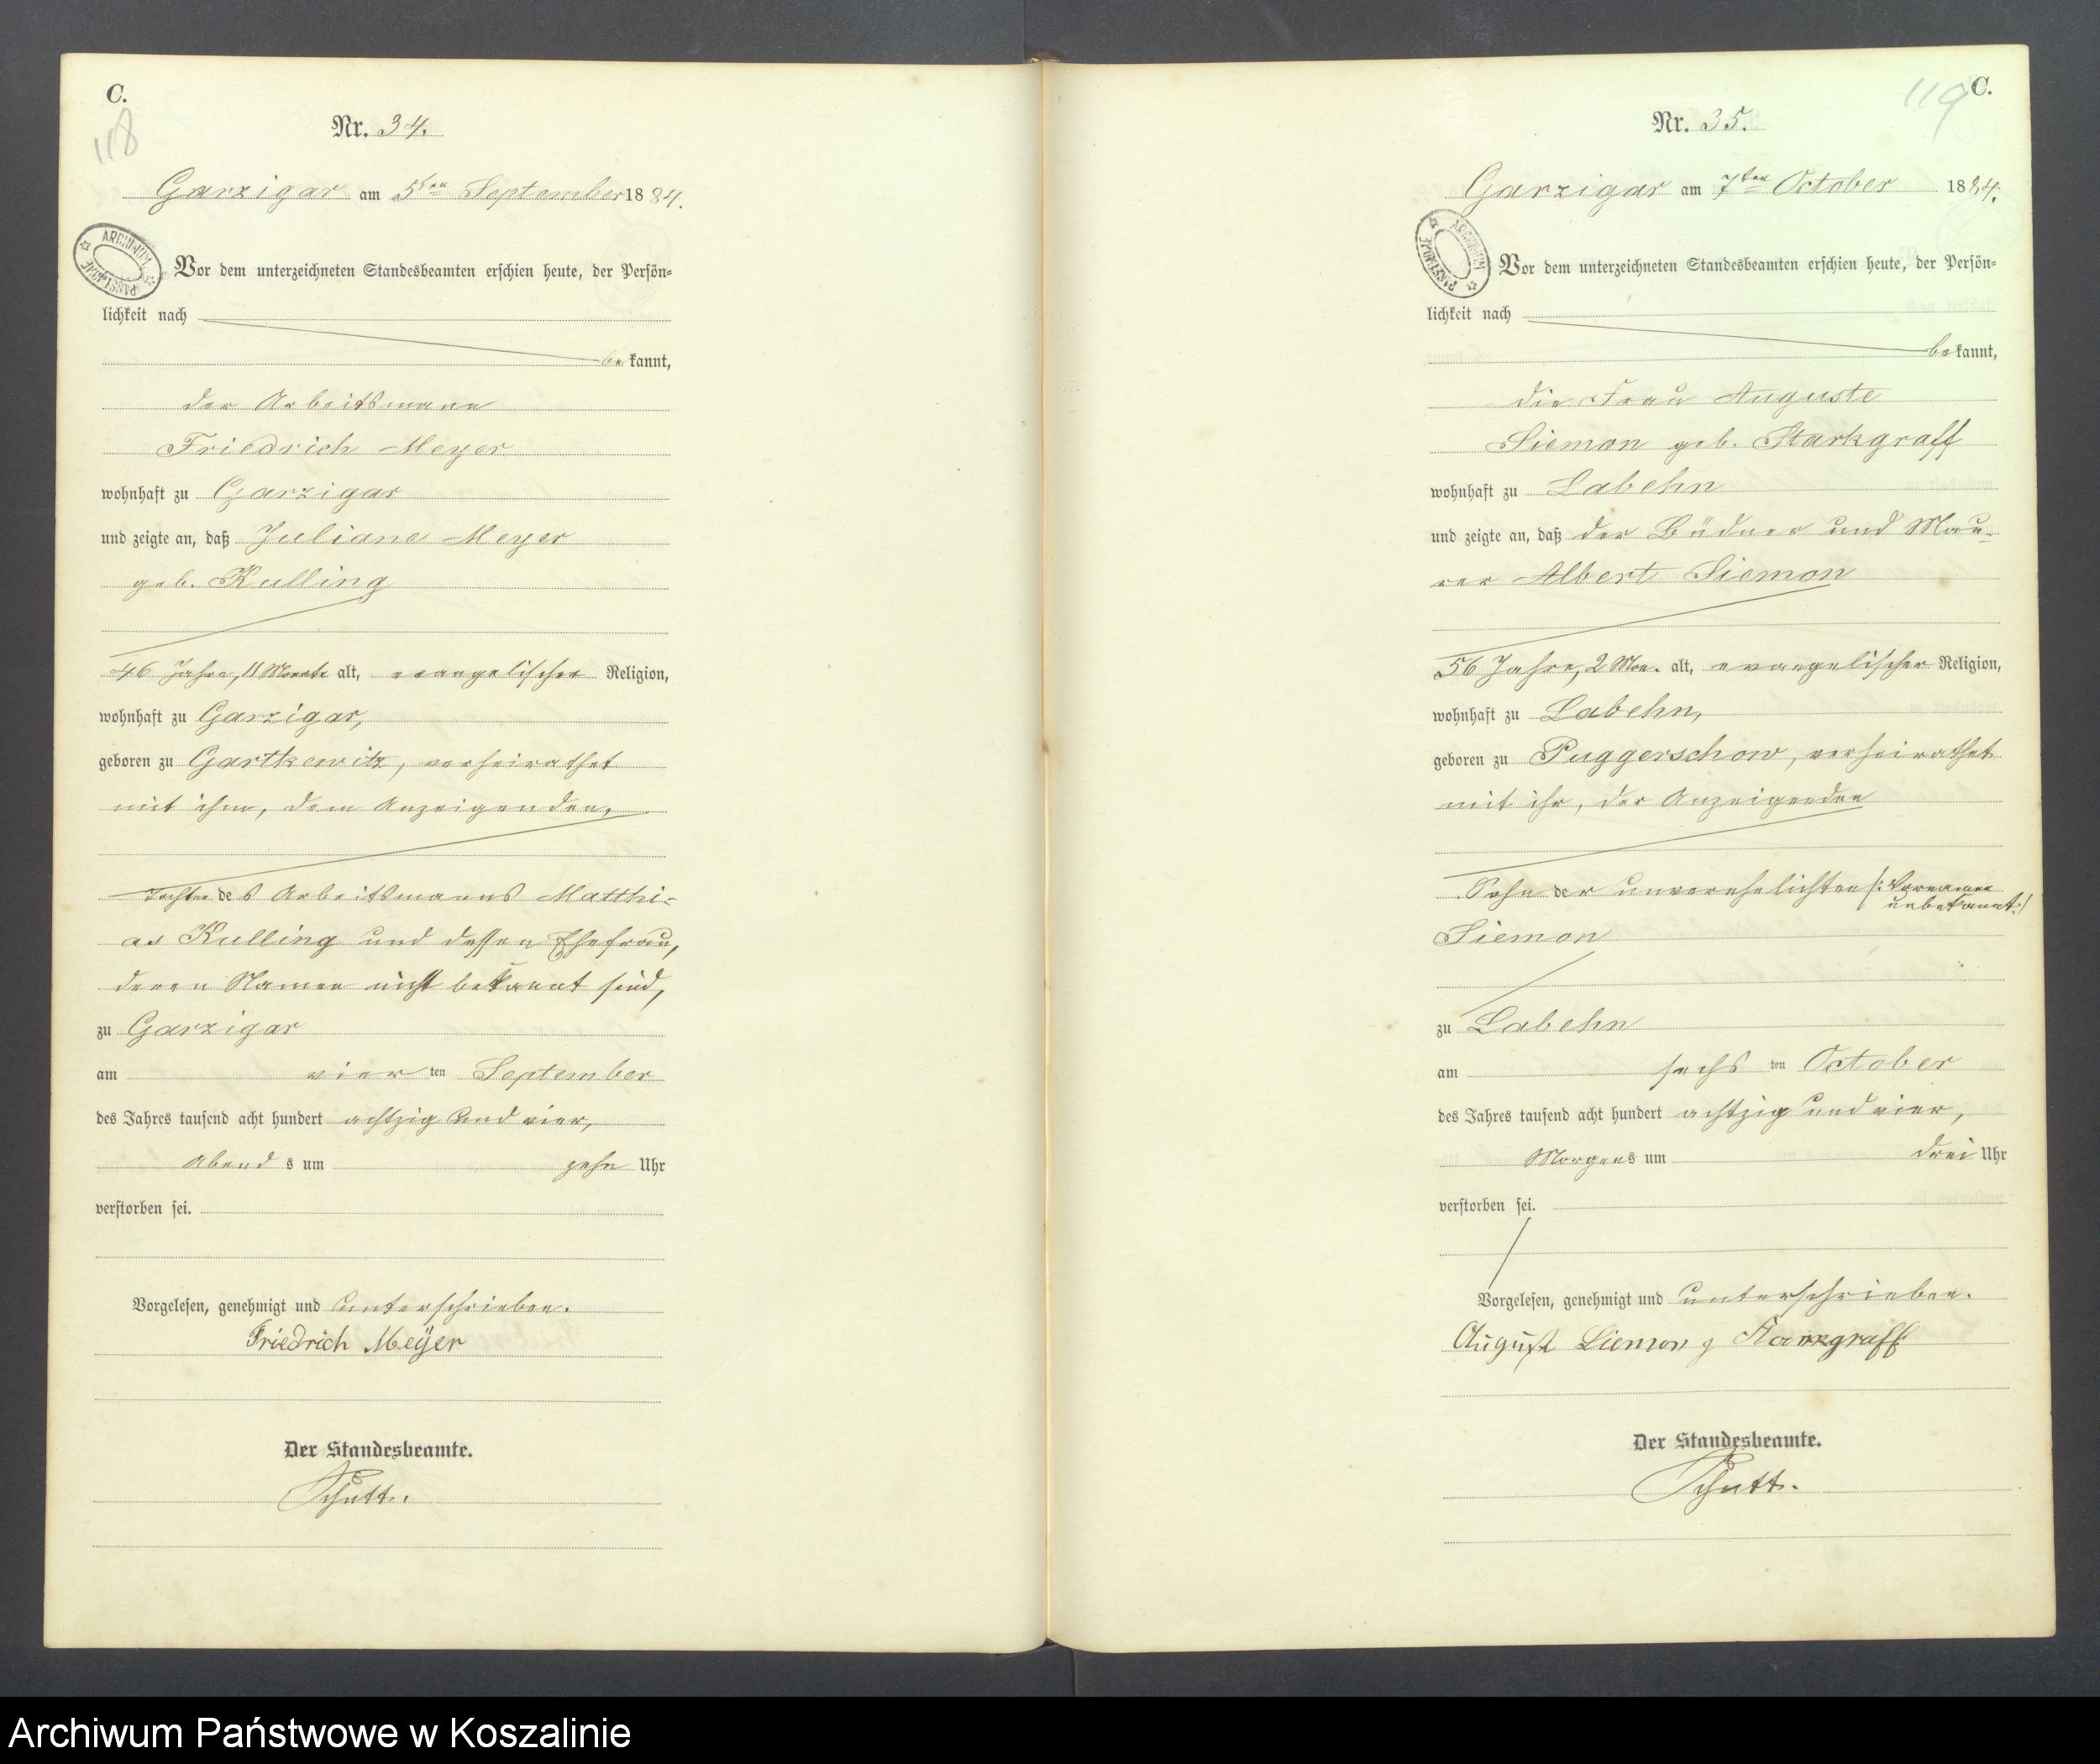 C.
118
Nr. 34.
Garzigar am 5ten September 1884.
ARCHIWUM PAŃSTWOWE
Vor dem unterzeichneten Standesbeamten erschien heute, der Persön=
lichkeit nach
bekannt,
der Arbeitsmann
Friedrich Meyer
wohnhaft zu Garzigar
und zeigte an, daß Juliane Meyer
geb. Kulling
46 Jahre, 11 Monate alt, evangelischer Religion,
wohnhaft zu Garzigar,
geboren zu Gartkewitz, verheirathet
mit ihm, dem Anzeigenden,
Tochter des Arbeitsmanns Matthi-
as Kulling und dessen Ehefrau,
deren Namen nicht bekannt sind,
zu Garzigar
am vier ten September
des Jahres tausend acht hundert achtzig und vier,
Abend s um zehn Uhr
verstorben sei.
Vorgelesen, genehmigt und unterschrieben.
Friedrich Meÿer
Der Standesbeamte.
Schutt.
119
C.
Nr. 35.
Garzigar am 7ten October 1884.
ARCHIWUM PAŃSTWOWE
Vor dem unterzeichneten Standesbeamten erschien heute, der Persön=
lichkeit nach
bekannt,
die Frau Auguste
Siemon geb. Starkgraff
wohnhaft zu Labehn
und zeigte an, daß der Büdner und Mau-
rer Albert Siemon
56 Jahre, 2 Mon. alt, evangelischer Religion,
wohnhaft zu Labehn,
geboren zu Puggerschow, verheirathet
mit ihr, der Anzeigenden
Sohn der unverehelichten /: Vornamen
unbekannt :/
Siemon
zu Labehn
am sechs ten October
des Jahres tausend acht hundert achtzig und vier,
Morgens um drei Uhr
verstorben sei.
Vorgelesen, genehmigt und unterschrieben.
August Siemon g
Der Standesbeamte.
Schutt.
Archiwum Państwowe w Koszalinie